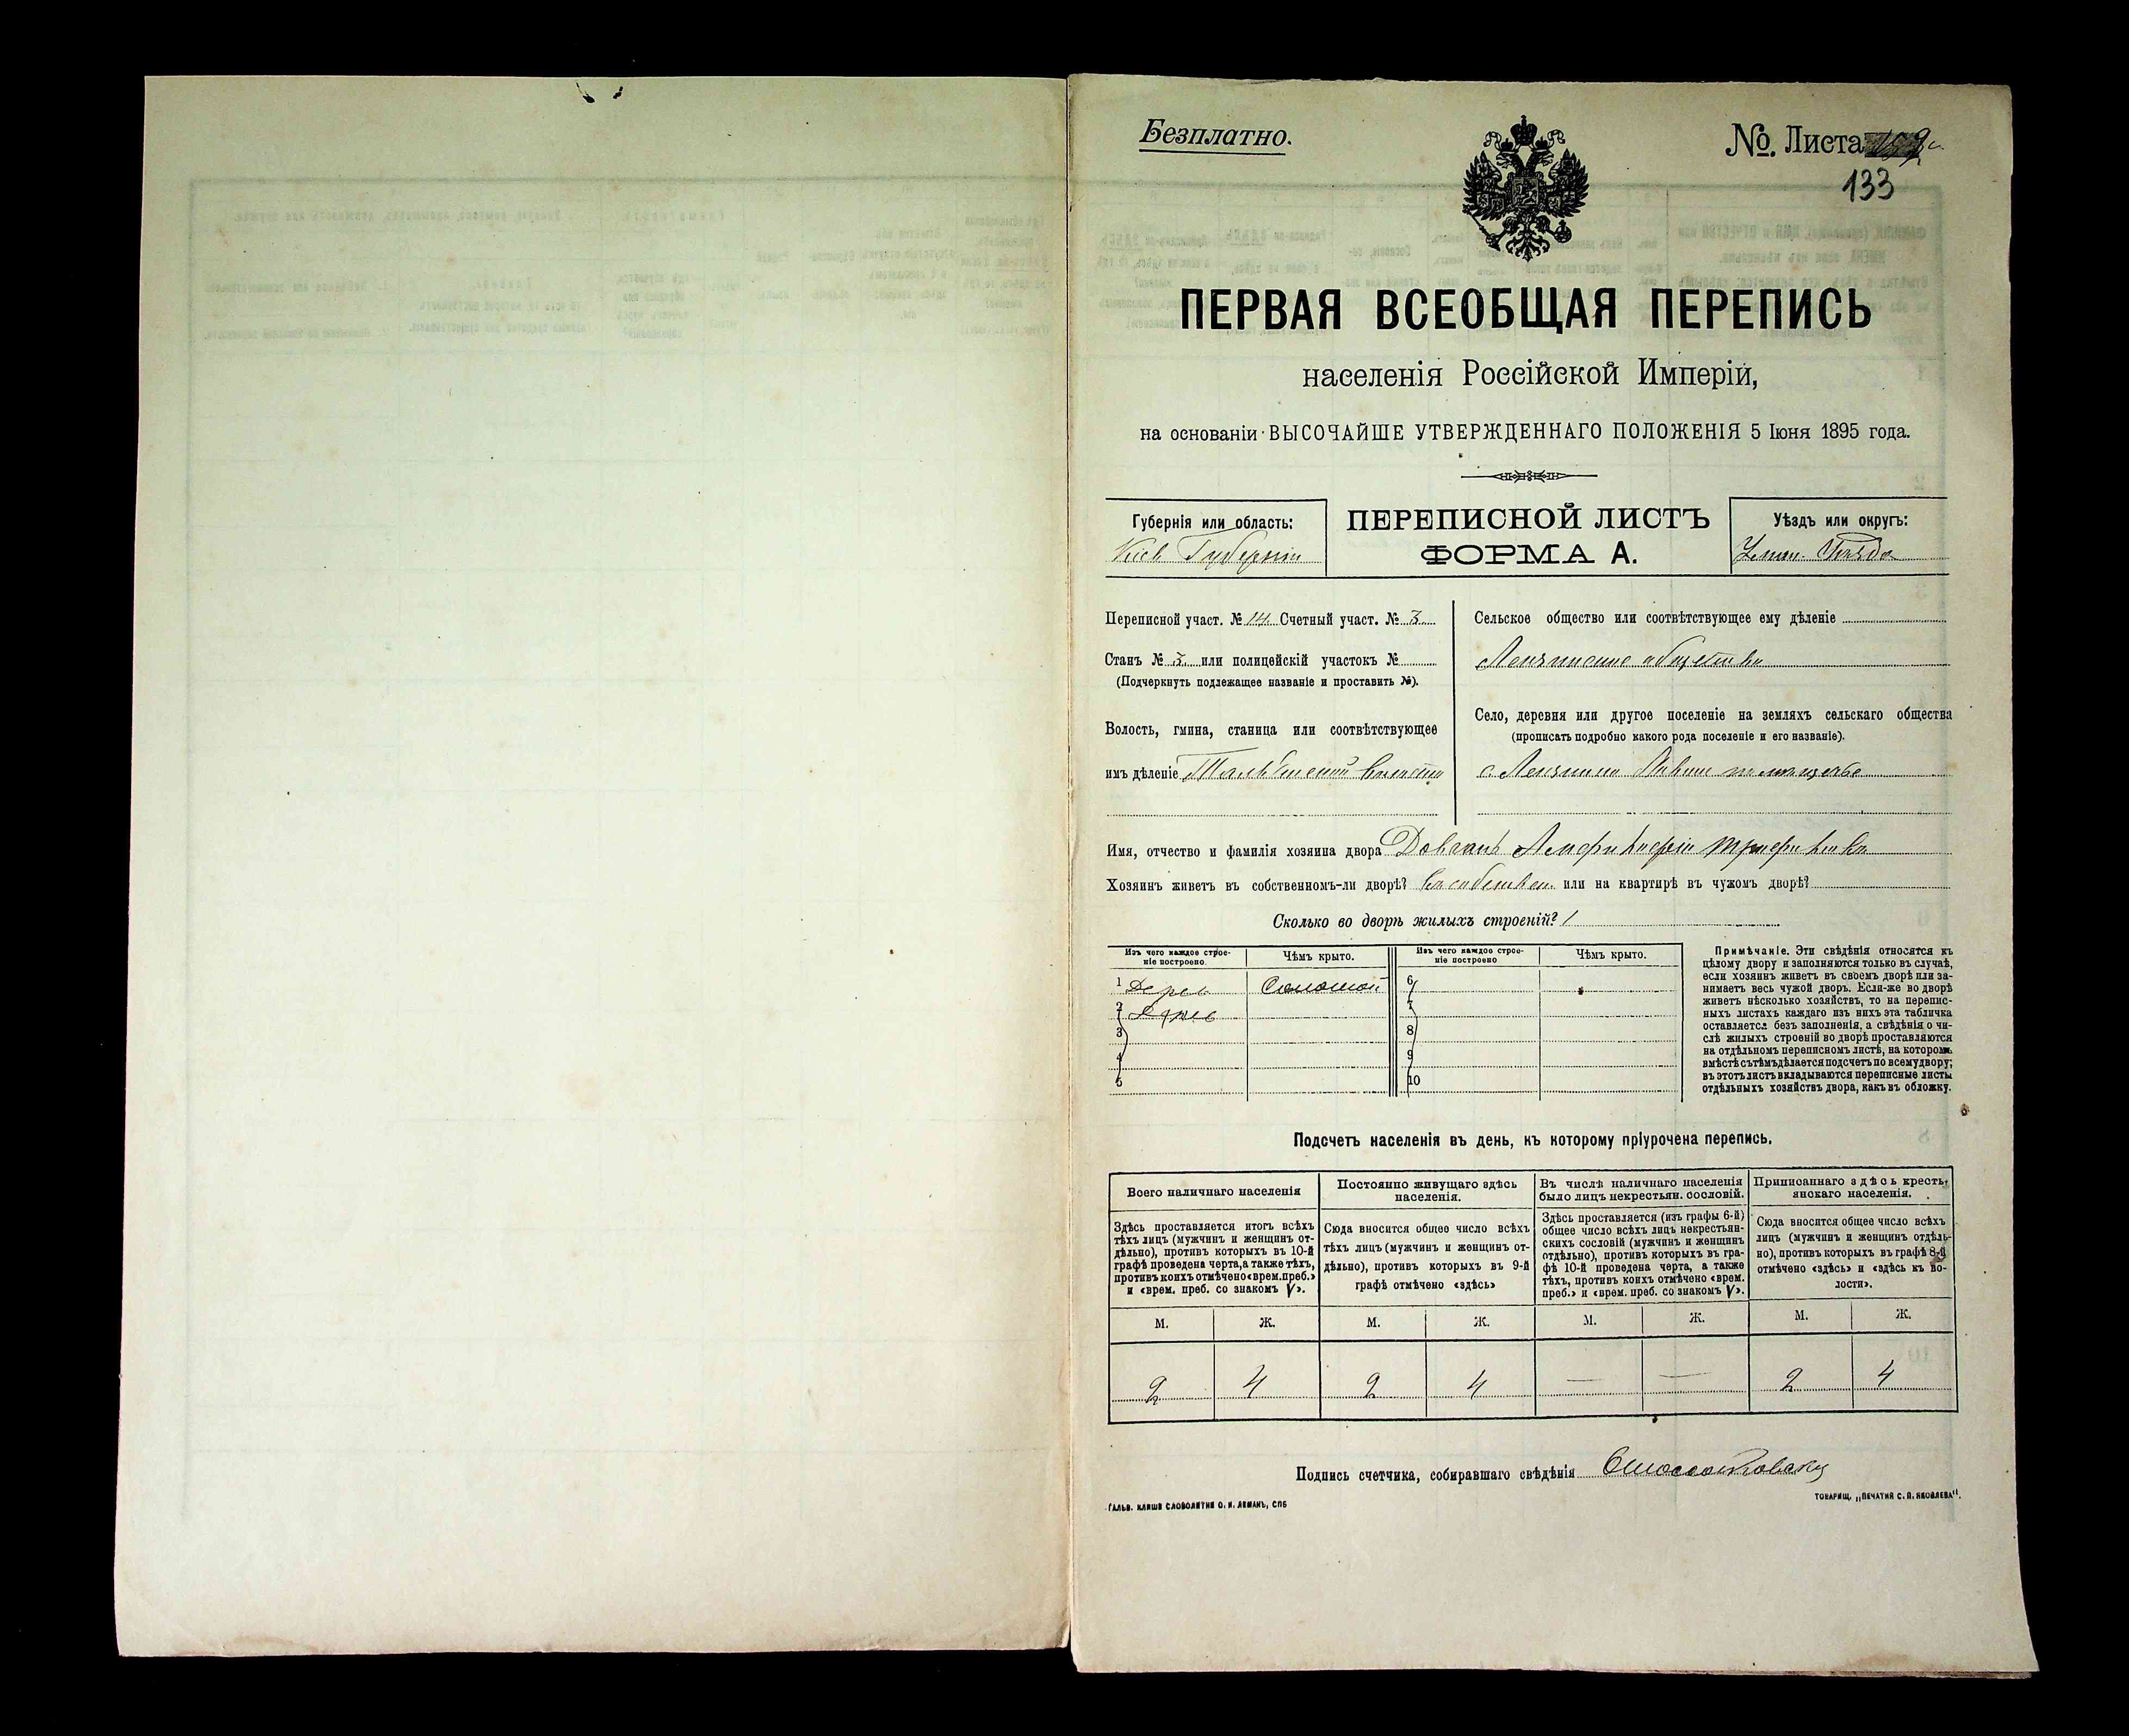 Безплатно.
№. Листа
133
ПЕРВАЯ ВСЕОБЩАЯ ПЕРЕПИСЬ
населенія Россійской Имперіи,
на основаніи ВЫСОЧАЙШЕ УТВЕРЖДЕННАГО ПОЛОЖЕНІЯ 5 Іюня 1895 года.
Губернія или область:
Кіев Губерніи
ПЕРЕПИСНОЙ ЛИСТЪ
ФОРМА А.
Уѣздъ или округъ:
Уман. Уѣзда
Переписной участ. № 14. Счетный участ. № 3
Станъ № 3 или полицейскій участокъ №
(Подчеркнуть подлежащее названіе и проставить №).
Волость, гмина, станица или соотвѣтствующее
имъ дѣленіе волости
Сельское общество или соотвѣтствующее ему дѣленіе
общества
Село, деревня или другое поселеніе на земляхъ сельскаго общества
(прописать подробно какого рода поселеніе и его названіе).
с.
Имя, отчество и фамилія хозяина двора Довгань
Хозяинъ живетъ въ собственномъ-ли дворѣ? въ собствен. или на квартирѣ въ чужомъ дворѣ?
Сколько во дворѣ жилыхъ строеній? 1
Изъ чего каждое строе-
ніе построено.
Чѣмъ крыто.
Изъ чего каждое строе-
ніе построено
Чѣмъ крыто.
1 Дерев Соломой 6
2 7
3 8
4 9
5 10
Примѣчаніе. Эти свѣдѣнія относятся къ
цѣлому двору и заполняются только въ случаѣ,
если хозяинъ живетъ въ своемъ дворѣ или за-
нимаетъ весь чужой дворъ. Если-же во дворѣ
живетъ нѣсколько хозяйствъ, то на перепис-
ныхъ листахъ каждаго изъ нихъ эта табличка
оставляется безъ заполненія, а свѣдѣнія о чи-
слѣ жилыхъ строеній во дворѣ проставляются
на отдѣльномъ переписномъ листѣ, на которомъ
вмѣстѣ съ тѣмъ дѣлается подсчетъ по всему двору;
въ этотъ листъ вкладываются переписные листы
отдѣльныхъ хозяйствъ двора, какъ въ обложку.
Подсчетъ населенія въ день, къ которому пріурочена перепись.
Всего наличнаго населенія
Здѣсь проставляется итогъ всѣхъ
тѣхъ лицъ (мужчинъ и женщинъ от-
дѣльно), противъ которыхъ въ 10-й
графѣ проведена черта, а также тѣхъ,
противъ коихъ отмѣчено «врем. преб.»
и «врем. преб. со знакомъ V».
Постоянно живущаго здѣсь
населенія.
Сюда вносится общее число всѣхъ
тѣхъ лицъ (мужчинъ и женщинъ от-
дѣльно), противъ которыхъ въ 9-й
графѣ отмѣчено «здѣсь»
Въ числѣ наличнаго населенія
было лицъ некрестьян. сословій.
Здѣсь проставляется (изъ графы 6-й)
общее число всѣхъ лицъ некрестьян-
скихъ сословій (мужчинъ и женщинъ
отдѣльно), противъ которыхъ въ гра-
фѣ 10-й проведена черта, а также
тѣхъ, противъ коихъ отмѣчено «врем.
преб.» и «врем. преб. со знакомъ V».
Приписаннаго здѣсь кресть-
янскаго населенія.
Сюда вносится общее число всѣхъ
лицъ (мужчинъ и женщинъ отдѣль-
но), противъ которыхъ въ графѣ 8-й
отмѣчено «здѣсь» и «здѣсь къ во-
лости».
М. Ж. М. Ж. М. Ж. М. Ж.
2 4 2 4 — — 2 4
Подпись счетчика, собиравшаго свѣдѣнія
ГАЛЬВ. КЛИШЕ СЛОВОЛИТНИ О. И. ЛЕМАНЪ, СПБ
ТОВАРИЩ. „ПЕЧАТНЯ С. П. ЯКОВЛЕВА“.